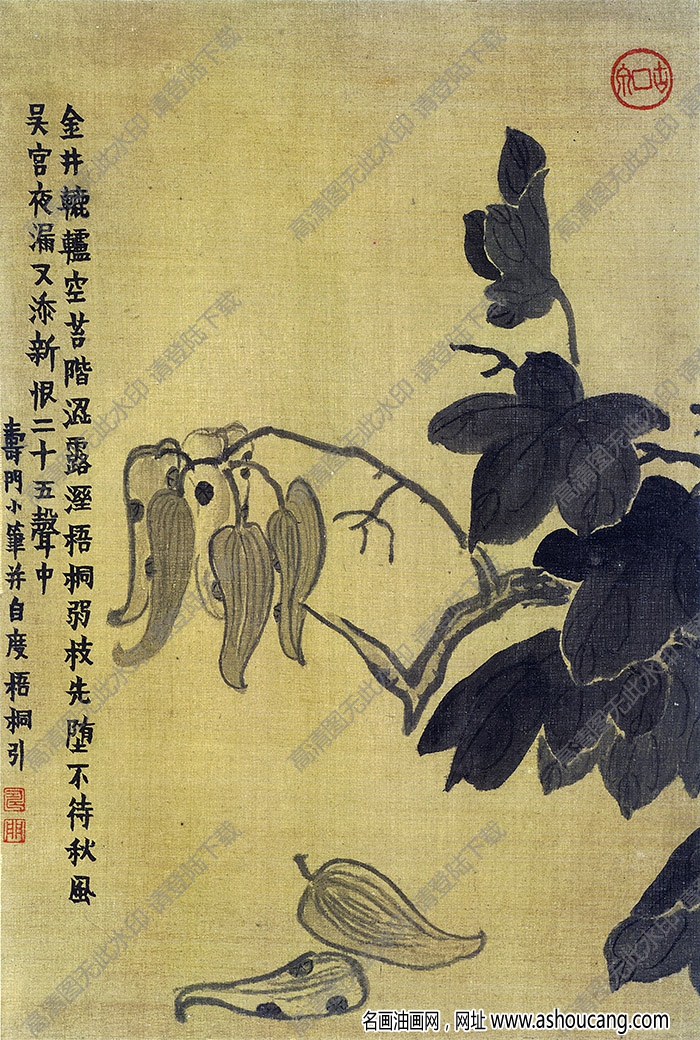 金井轆轤空苔階澀露溼梧桐弱枝先堕不待秋風
吴宫夜漏又添新恨二十五聲中
壽門小筆并自度梧桐引
高清图无此水印 请登陆下载
名画油画网，网址 www.ashoucang.com